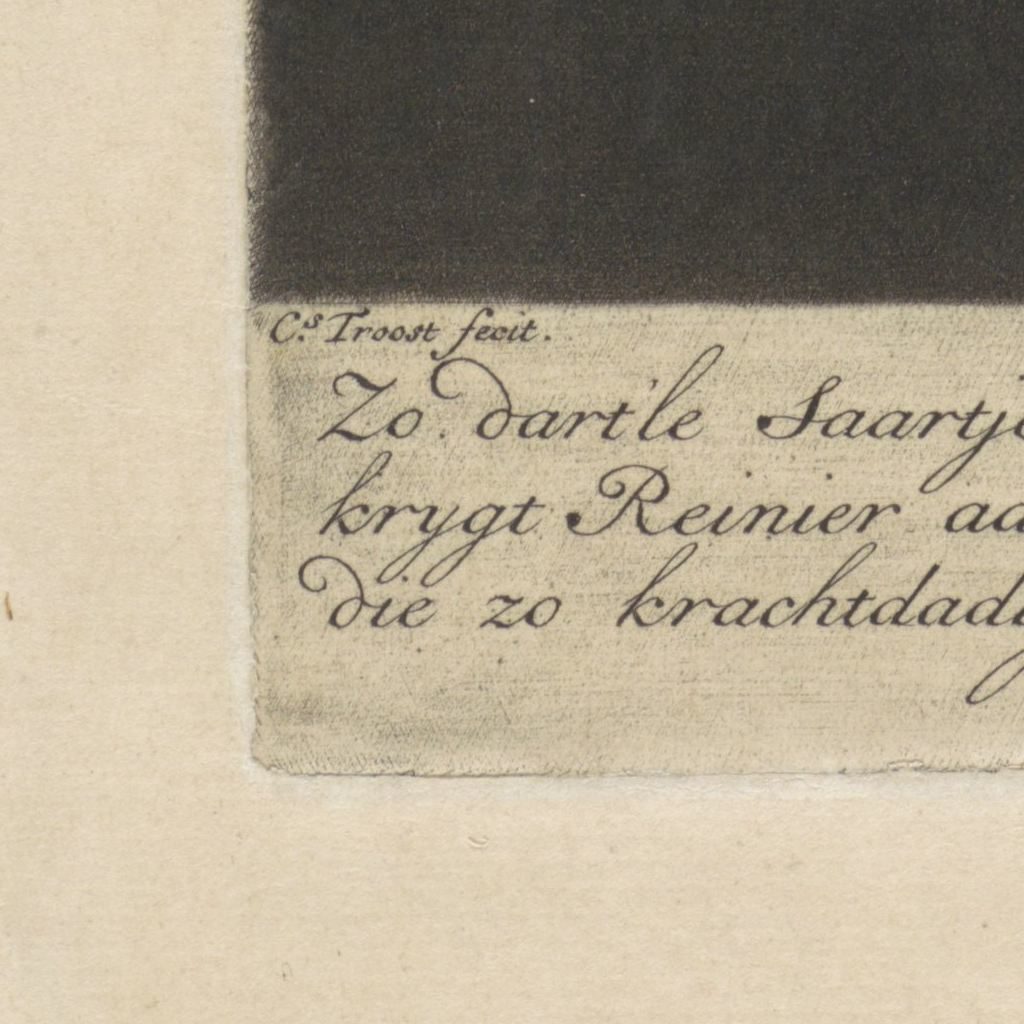 C.s Troost fecit.
Zo dart'le Saartje
krygt Reinier aa
die zo krachtdad